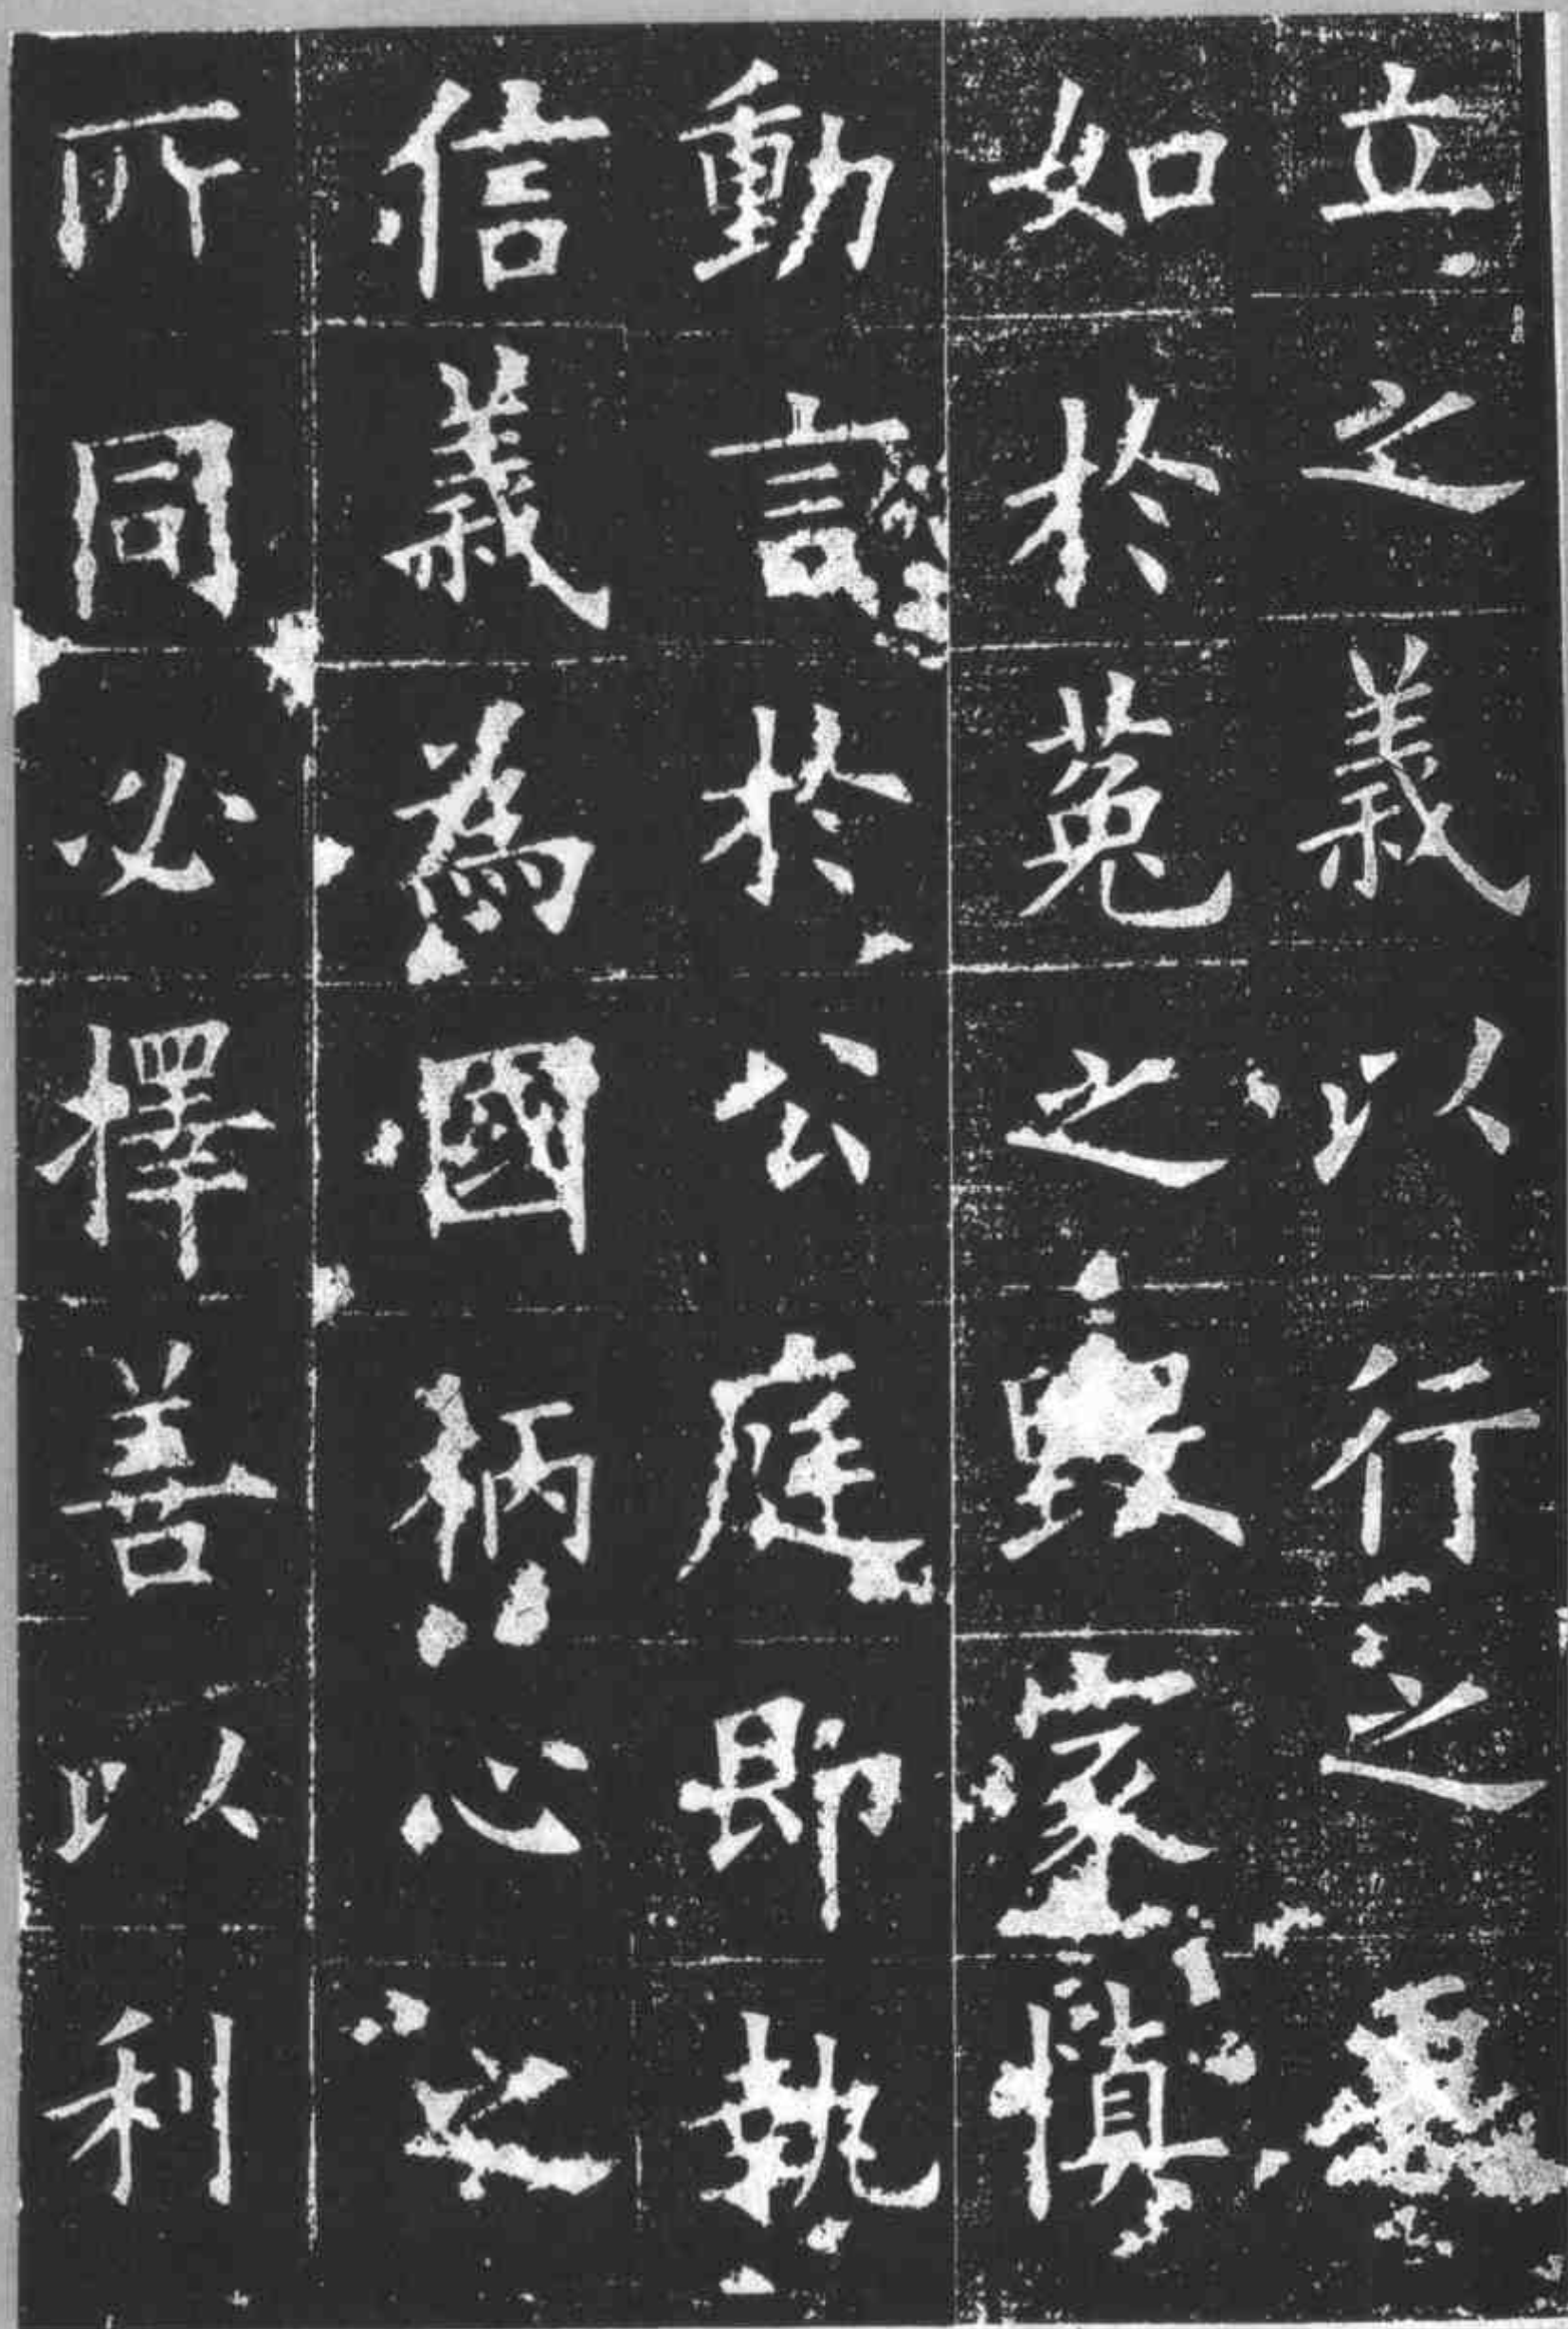 立之義以行之
如於菟之毀家慎
動言於公庭即執
信義為國柄心之
所同必擇善以利